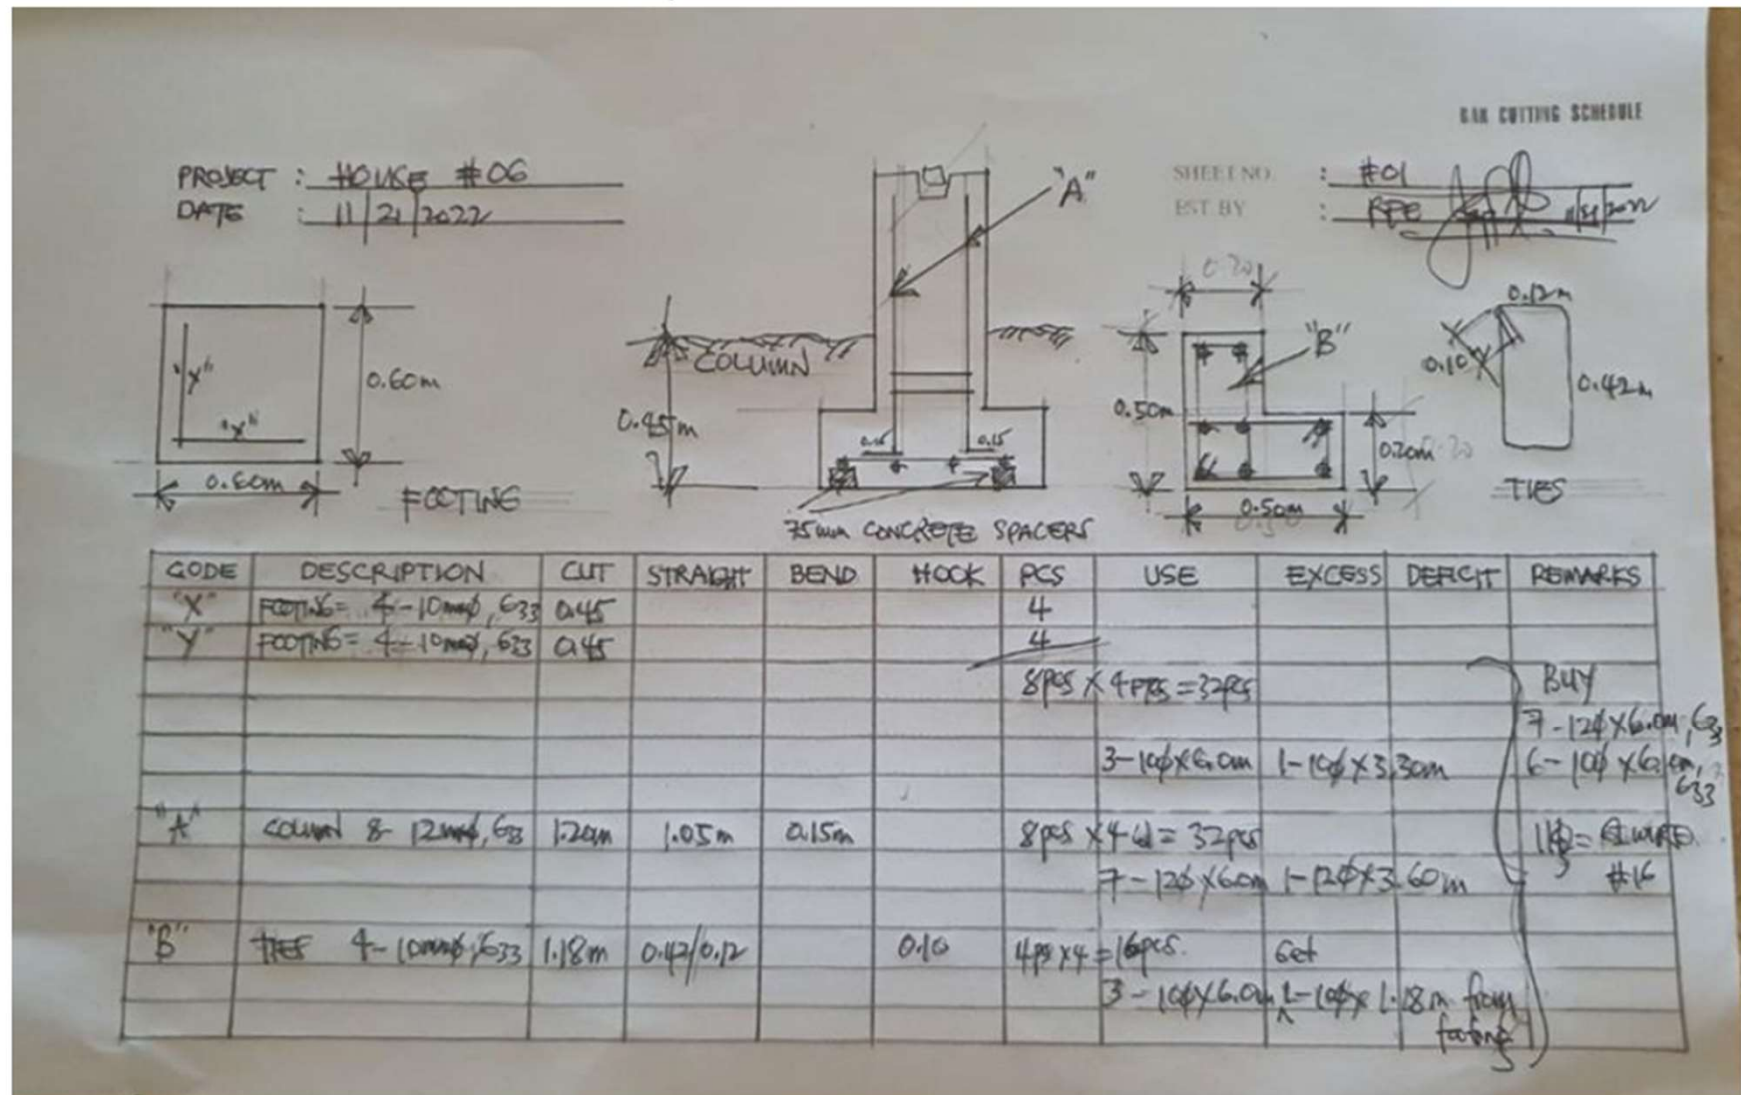 BAR CUTTING SCHEDULE
PROJECT : HOUSE #06
DATE : 11/21/2022
SHEET NO. : #01
EST. BY : RPE 11/21/2022
"A"
"Y"
"X"
0.60m
0.60m
FOOTING
COLUMN
0.45m
0.15
0.15
75mm CONCRETE SPACERS
0.20
"B"
0.50m
0.20m 0.20
0.50m
0.12m
0.10
0.42m
TIES
CODE DESCRIPTION CUT STRAIGHT BEND HOOK PCS USE EXCESS DEFICIT REMARKS
"X" FOOTING= 4-10mmø, G33 0.45 4
"Y" FOOTING= 4-10mmø, G33 0.45 4
8pcs x 4 FTGS = 32pcs BUY
7-12ø x 6.0m, G33
3-10ø x 6.0m 1-10ø x 3.30m 6-10ø x 6.0m, G33
"A" COLUMN 8- 12mmø, G33 1.20m 1.05m 0.15m 8pcs x 4 = 32pcs
#16
7-12ø x 6.0m 1-12ø x 3.60m
"B" TIES 4-10mmø, G33 1.18m 0.42/0.12 0.10 4pcs x 4 = 16pcs. Get
3-10ø x 6.0m 1-10ø x 1.18m from
footing